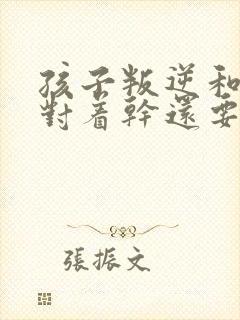 孩子叛逆和
對着幹還要
張振文